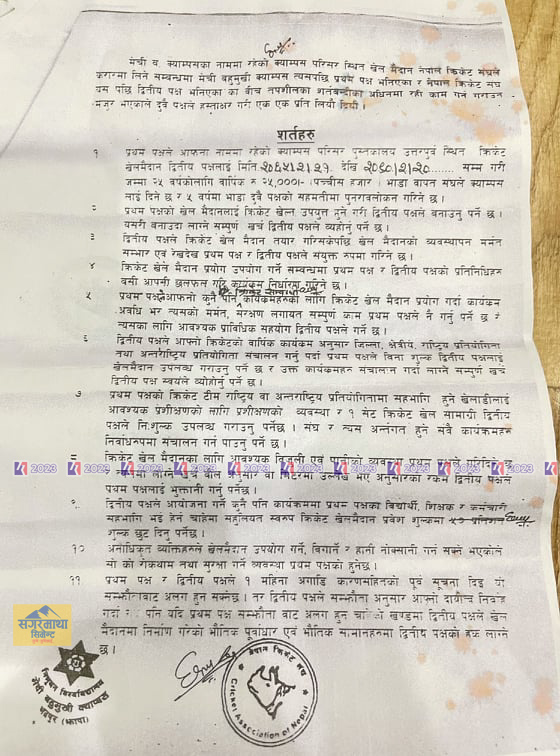 मेची व. क्याम्पसका नाममा रहेको क्याम्पस परिसर स्थित खेल मैदान नेपाल क्रिकेट संघले
करारमा लिने सम्बन्धमा मेची बहुमुखी क्याम्पस त्यसपछि प्रथम पक्ष भनिएका र नेपाल क्रिकेट संघ
यस पछि द्वितिय पक्ष भनिएका का बीच तपशीलका शर्तबन्दीका अधिनमा रही काम गर्न गराउन
मंजुर भएकाले दुवै पक्षले हस्ताक्षर गरी एक एक प्रति लियौं दियौं ।
शर्तहरु
१ प्रथम पक्षले आफ्ना नाममा रहेको क्याम्पस परिसर पुस्तकालय उत्तरपूर्व स्थित क्रिकेट
खेलमैदान द्वितिय पक्षलाई मिति २०६५।२।२१ देखि २०९०।२।२० सम्म गरी
जम्मा २५ वर्षकोलागि वार्षिक रु २५,०००।- पच्चीस हजार । भाडा वापत संघले क्याम्पस
लाई दिने छ र ५ वर्षमा भाडा दुवै पक्षको सहमतीमा पुनरावलोकन गरिने छ ।
२ प्रथम पक्षको खेल मैदानलाई क्रिकेट खेल्न उपयुक्त हुने गरी द्वितीय पक्षले बनाउनु पर्ने छ ।
यसरी बनाउदा लाग्ने सम्पुर्ण खर्च द्वितिय पक्षले व्यहोर्नु पर्ने छ ।
३ द्वितीय पक्षले क्रिकेट खेल मैदान तयार गरिसकेपछि खेल मैदानको व्यवस्थापन मर्मत
सम्भार एवं रेखदेख प्रथम पक्ष र द्वितीय पक्षले संयुक्त रुपमा गरिने छ ।
४ क्रिकेट खेल मैदान प्रयोग उपयोग गर्ने सम्बन्धमा प्रथम पक्ष र द्वितिय पक्षको प्रतिनिधिहरु
वसी आपसी छलफल गरि कार्यक्रम निर्धारण गरिने छ ।
५ प्रथम पक्षले आफ्नो कुनै पनि कार्यक्रमहरुका लागि क्रिकेट खेल मैदान प्रयोग गर्दा कार्यक्रम
अवधि भर त्यसको मर्मत, संरक्षण लगायत सम्पुर्ण काम प्रथम पक्षले नै गर्नु पर्ने छ र
त्यसका लागि आवश्यक प्राविधिक सहयोग द्वितिय पक्षले गर्ने छ ।
६ द्वितिय पक्षले आफ्नो क्रिकेटको वार्षिक कार्यक्रम अनुसार जिल्ला, क्षेत्रीय, राष्ट्रिय प्रतियोगिता
तथा अन्तर्राष्ट्रिय प्रतियोगिता संचालन गर्नु पर्दा प्रथम पक्षले विना शुल्क द्वितिय पक्षलाई
खेलमैदान उपलब्ध गराउनु पर्ने छ र उक्त कार्यक्रमहरु संचालन गर्दा लाग्ने सम्पुर्ण खर्च
द्वितिय पक्ष स्वयंले व्योहोर्नु पर्ने छ ।
७ प्रथम पक्षको क्रिकेट टीम राष्ट्रिय वा अन्तराष्ट्रिय प्रतियोगितामा सहभागि हुने खेलाडीलाई
आवश्यक प्रशीक्षणको लागि प्रशीक्षणको व्यवस्था र १ सेट क्रिकेट खेल सामाग्री द्वितिय
पक्षले नि:शुल्क उपलब्ध गराउनु पर्नेछ । संघ र त्यस अन्तर्गत हुने सबै कार्यक्रमहरु
निर्वाधरुपमा संचालन गर्न पाउनु पर्ने छ ।
८ क्रिकेट खेल मैदानका लागि आवश्यक विजुली एवं पानीको व्यवस्था प्रथम पक्षले गरिदिने छ
पक्षले
प्रथम पक्षलाई भुक्तानी गर्नु पर्नेछ ।
९ द्वितिय पक्षले आयोजना गर्ने कुनै पनि कार्यक्रममा प्रथम पक्षका विद्यार्थी, शिक्षक र कर्मचारी
सहभागि भई हेर्न चाहेमा सहुलियत स्वरुप क्रिकेट खेलमैदान प्रवेश शुल्कमा ५० प्रतिशत
शुल्क छुट दिनु पर्नेछ ।
१० अनाधिकृत व्यक्तिहरुले खेलमैदान उपयोग गर्ने, विगार्ने र हानी नोक्सानी गर्न सक्ने भएकोले
सो को रोकथाम तथा सुरक्षा गर्ने व्यवस्था प्रथम पक्षको हुनेछ ।
११ प्रथम पक्ष र द्वितिय पक्षले १ महिना अगाडि कारणसहितको पूर्व सूचना दिइ यो
सम्झौताबाट अलग हुन सक्नेछ । तर द्वितिय पक्षले सम्झौता अनुसार आफ्नो दायीत्व निर्वाह
गर्दा पनि यदि प्रथम पक्ष सम्झौता बाट अलग हुन चाहेको खण्डमा द्वितिय पक्षले खेल
मैदानमा निर्माण गरेको भौतिक पूर्वाधार एवं भौतिक सामानहरुमा द्वितिय पक्षको हक लाग्ने
छ ।
2023 2023 2023 2023 2023 2023 2023 2023 2023 2023
सगरमाथा
सिमेन्ट
त्रिभुवन विश्वविद्यालय
मेची बहुमुखी क्याम्पस
भद्रपुर (झापा)
नेपाल क्रिकेट संघ
Cricket Association of Nepal